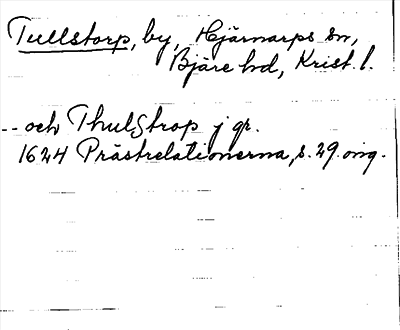 Tullstorp, by, Hjärnarps sn,
Bjäre hd, Krist. l.
-- och Thulstrop j gr.
1624 Prästrelationerna, s. 29. orig.